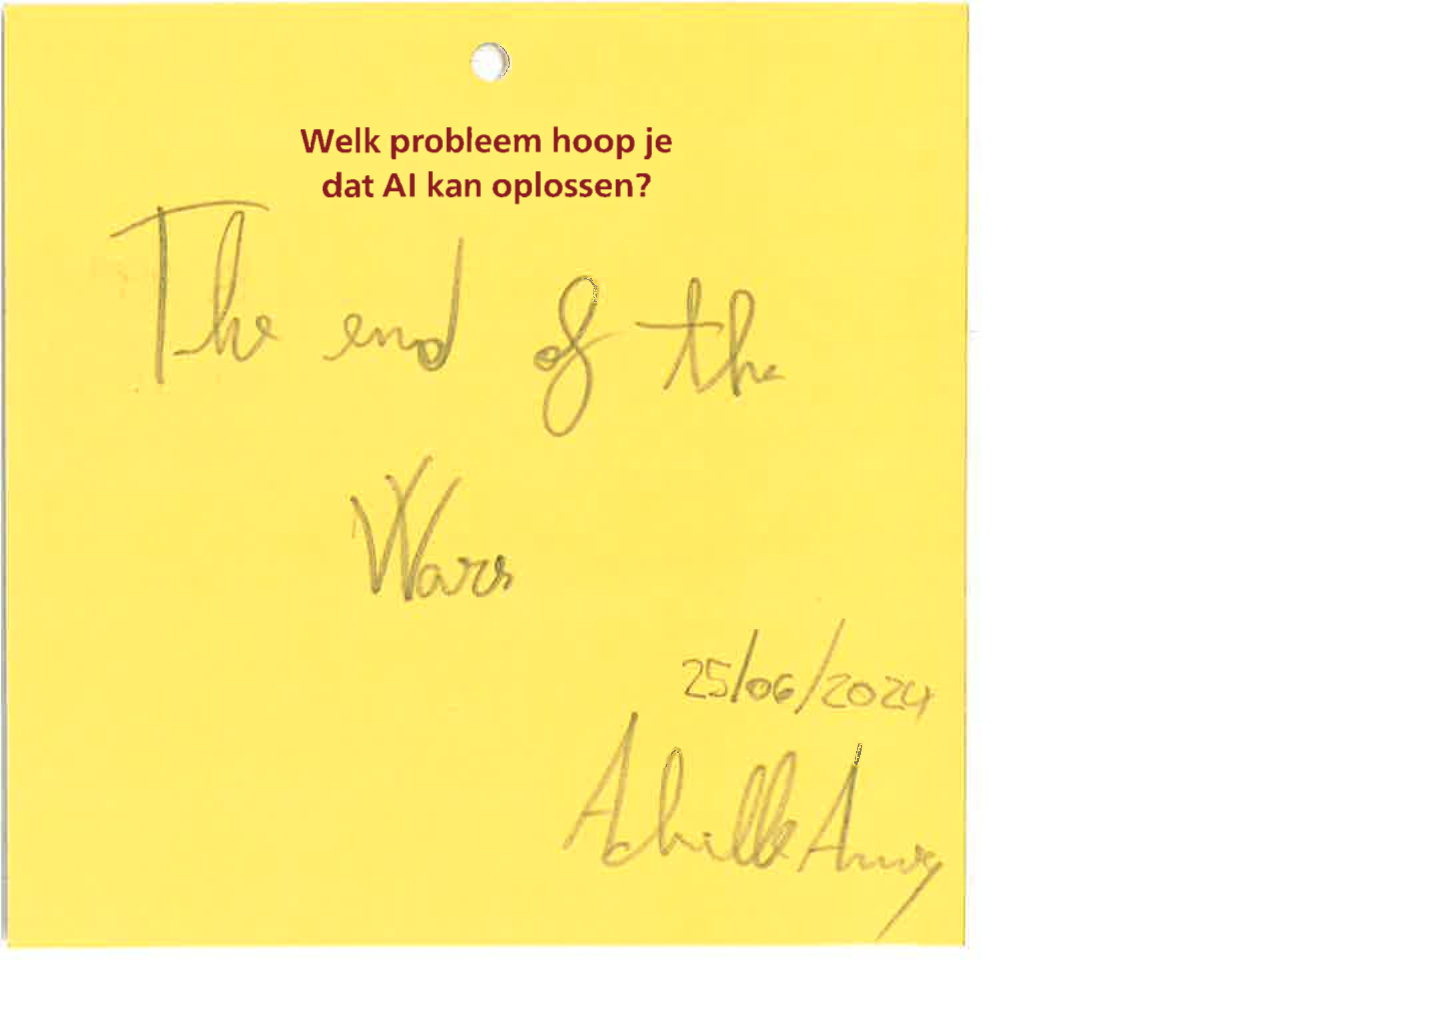 Welk probleem hoop je
dat AI kan oplossen?
The end of the
Wars
25/06/2024
Achille